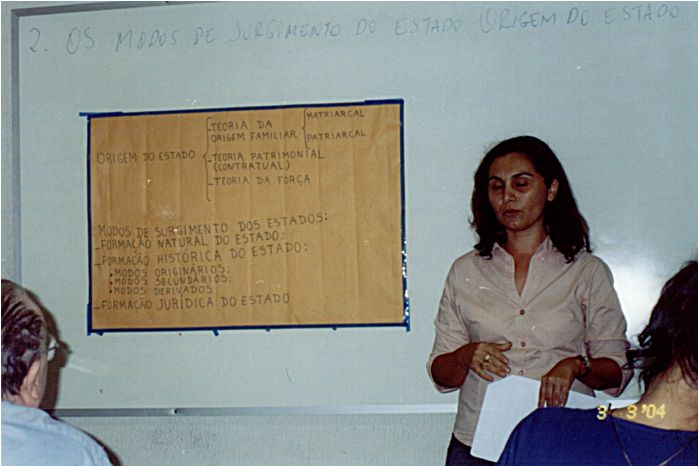 2. OS MODOS DE SURGIMENTO DO ESTADO. ORIGEM DO ESTADO.
ORIGEM DO ESTADO
TEORIA DA
ORIGEM FAMILIAR
MATRIARCAL
PATRIARCAL
-TEORIA PATRIMONIAL
(CONTRATUAL)
-TEORIA DA FORÇA
MODOS DE SURGIMENTO DOS ESTADOS:
-FORMAÇÃO NATURAL DO ESTADO;
-FORMAÇÃO HISTÓRICA DO ESTADO:
•MODOS ORIGINÁRIOS;
•MODOS SECUNDÁRIOS;
•MODOS DERIVADOS
-FORMAÇÃO JURÍDICA DO ESTADO
3 3 '04